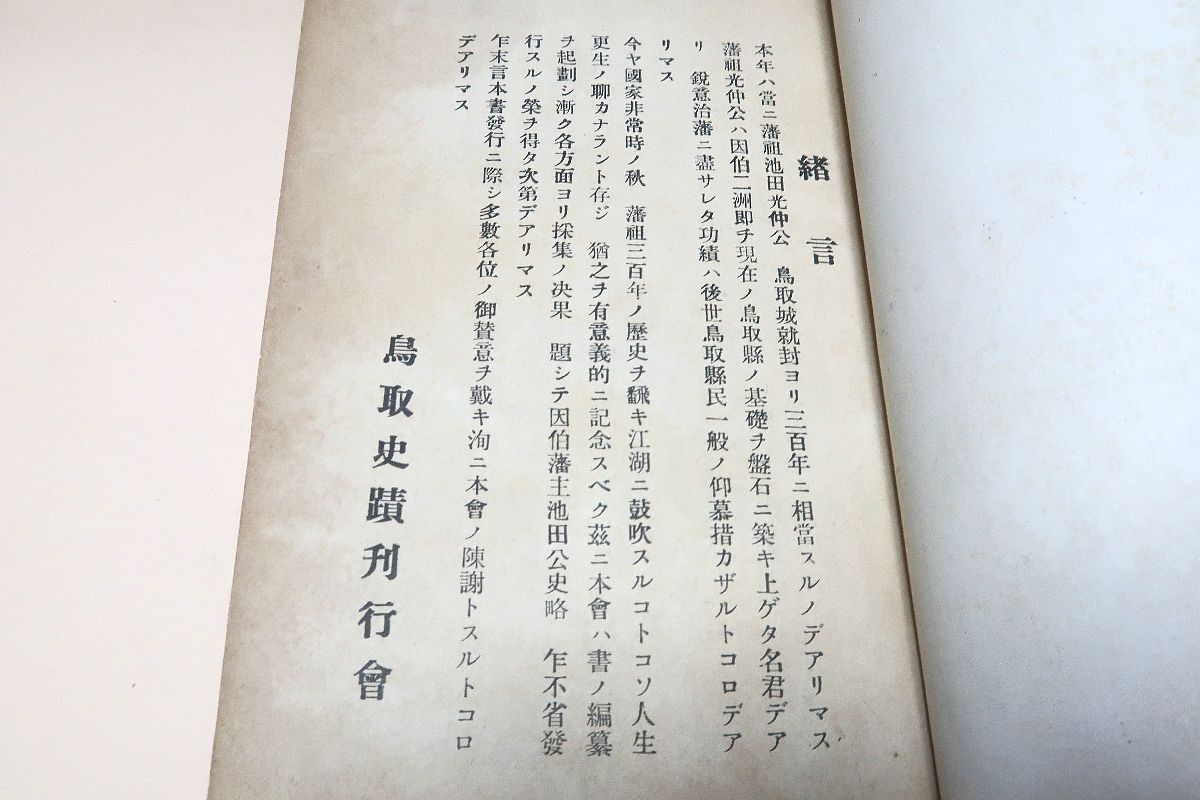 緒言
本年ハ當ニ藩祖池田光仲公　鳥取城就封ヨリ三百年ニ相當スルノデアリマス
藩祖光仲公ハ因伯二洲即チ現在ノ鳥取縣ノ基礎ヲ盤石ニ築キ上ゲタ名君デア
リ　鋭意治藩ニ盡サレタ功績ハ後世鳥取縣民一般ノ仰慕措カザルトコロデア
リマス
今ヤ國家非常時ノ秋　藩祖三百年ノ歴史ヲ飜キ江湖ニ鼓吹スルコトコソ人生
更生ノ聊カナラント存ジ　猶之ヲ有意義的ニ記念スベク茲ニ本會ハ書ノ編纂
ヲ起劃シ漸ク各方面ヨリ採集ノ决果　題シテ因伯藩主池田公史略　乍不省發
行スルノ榮ヲ得タ次第デアリマス
乍末言本書發行ニ際シ多數各位ノ御賛意ヲ戴キ洵ニ本會ノ陳謝トスルトコロ
デアリマス
鳥取史蹟刊行會